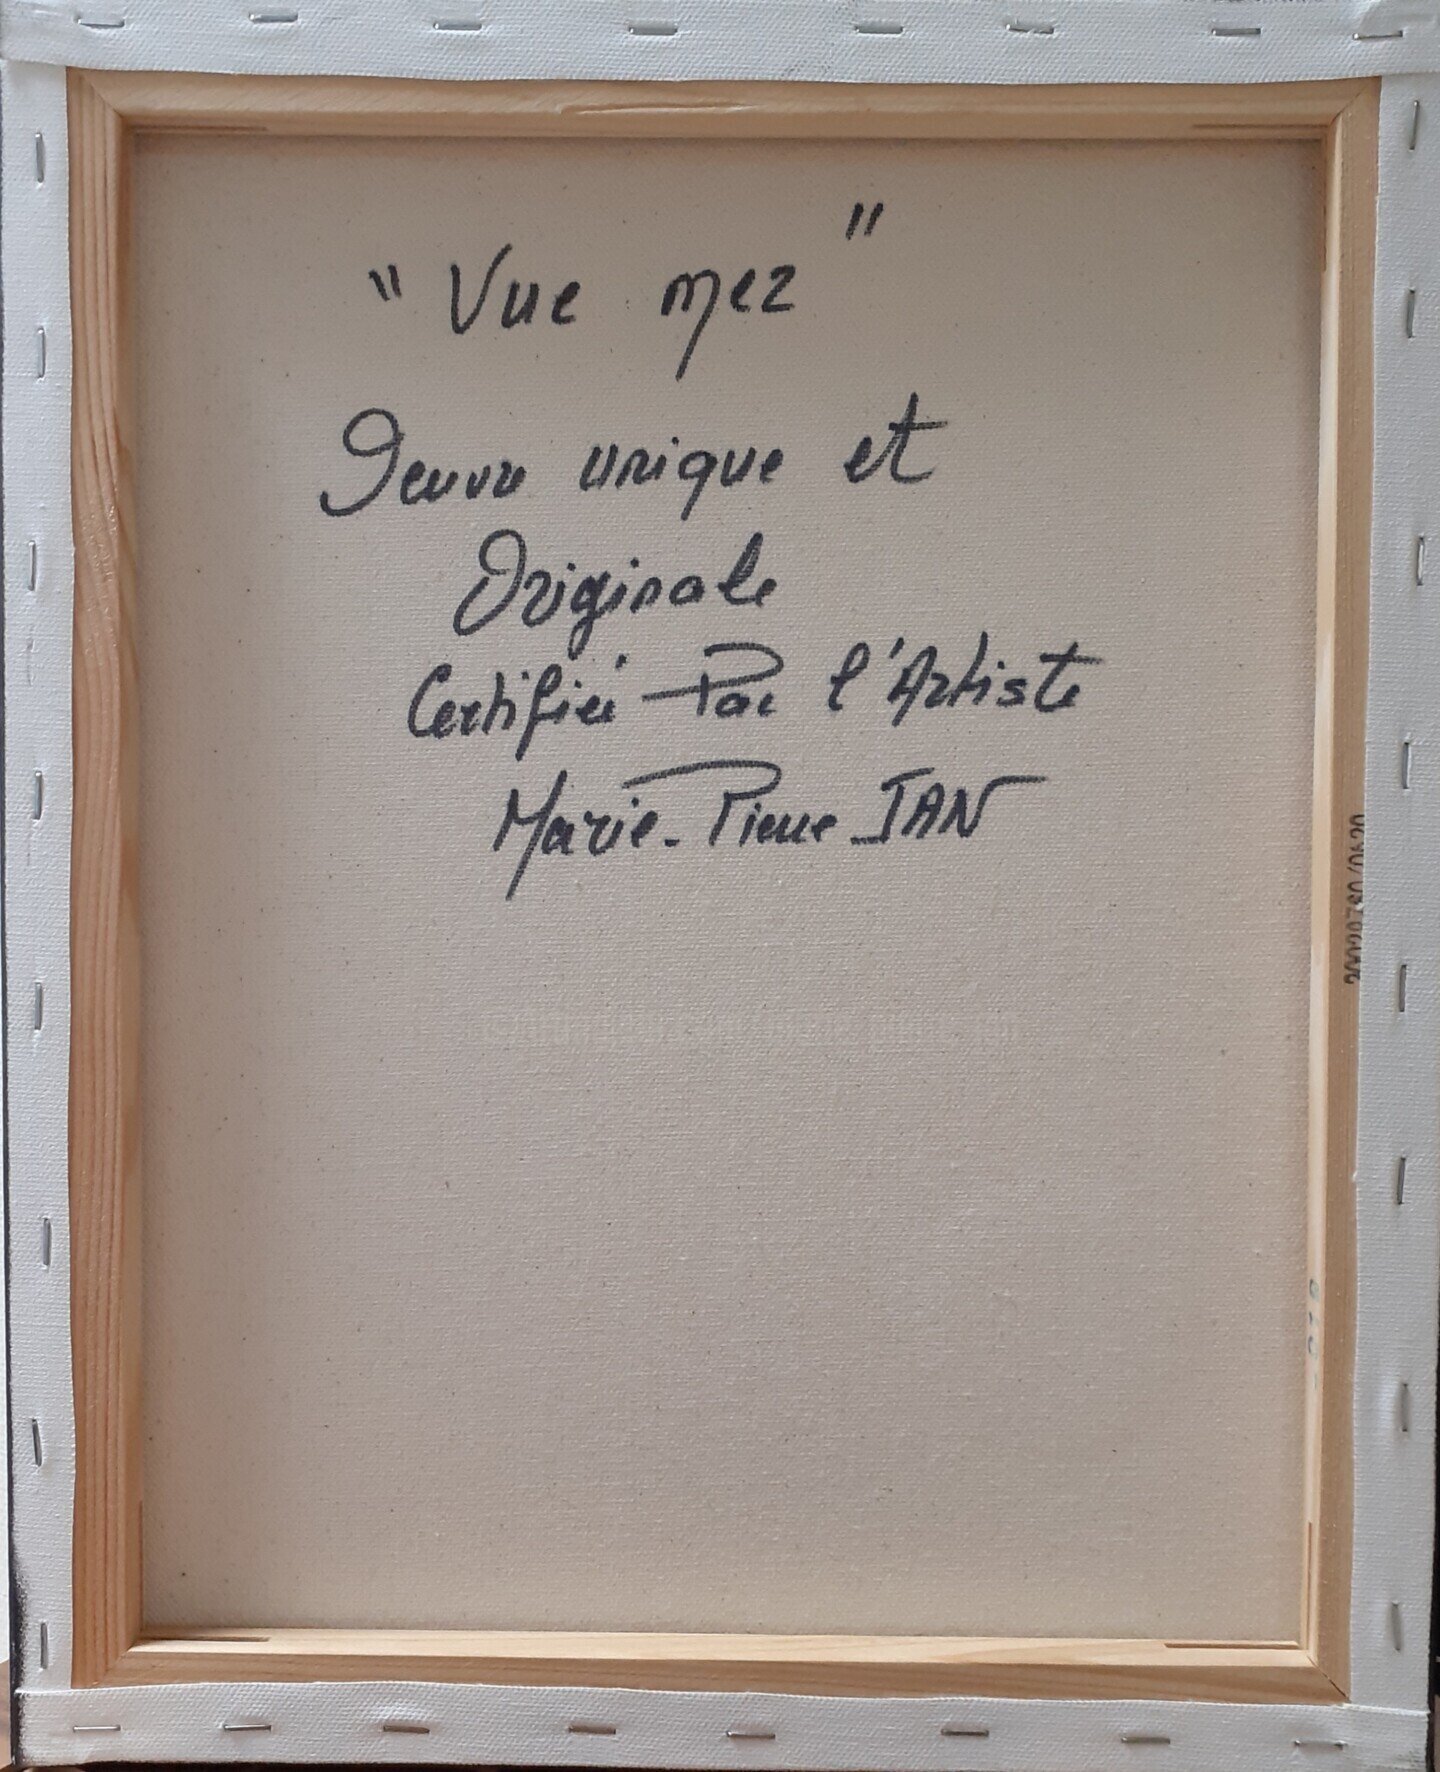 "Vue mer"
Oeuvre unique et
Originale
Certifiée Par l'Artiste
Marie-Pierre JAN
20020760/0620